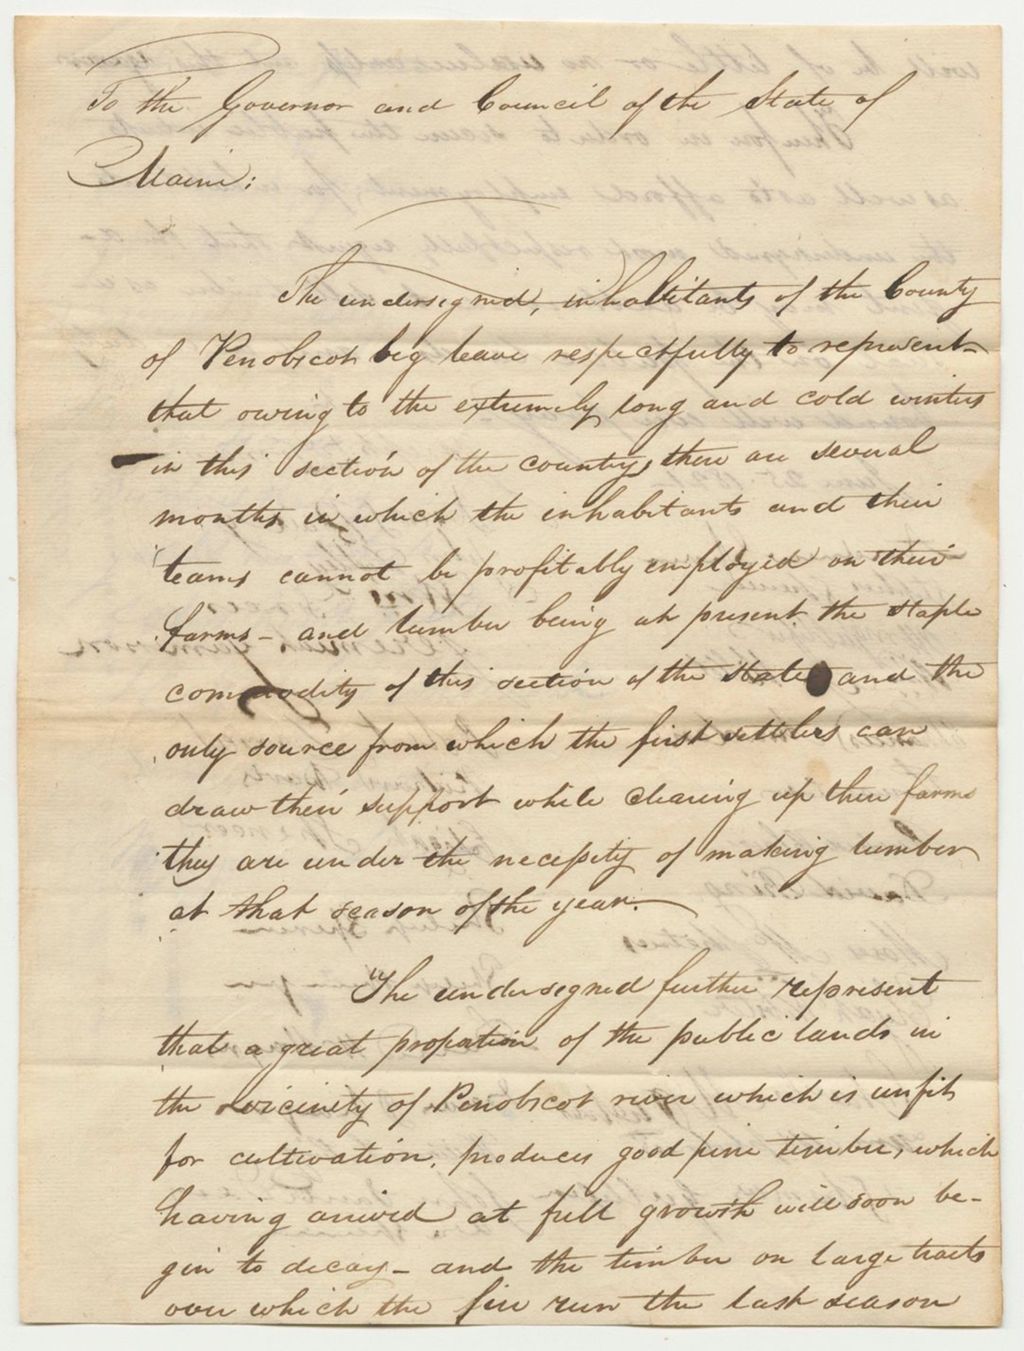 To the Governor and Council of the State of
Maine:
The undersigned, inhabitants of the County
of Penobscot beg leave respectfully to represent–
that owing to the extremely long and cold winters
in this section of the country, there are several
months in which the inhabitants and their
teams cannot be profitably employed on their
farms – and lumber being at present the staple
commodity of this section of the State and the
only source from which the first settlers can
draw their support while clearing up their farms
they are under the necessity of making lumber
at that season of the year.
The undersigned further represent
that a great propation of the public lands in
the vicinity of Penobscot river which is unfit
for cultivation, produces good pine timber, which
having arrived at full growth will soon be-
gin to decay – and the timber on large tracts
over which the fire run the last season